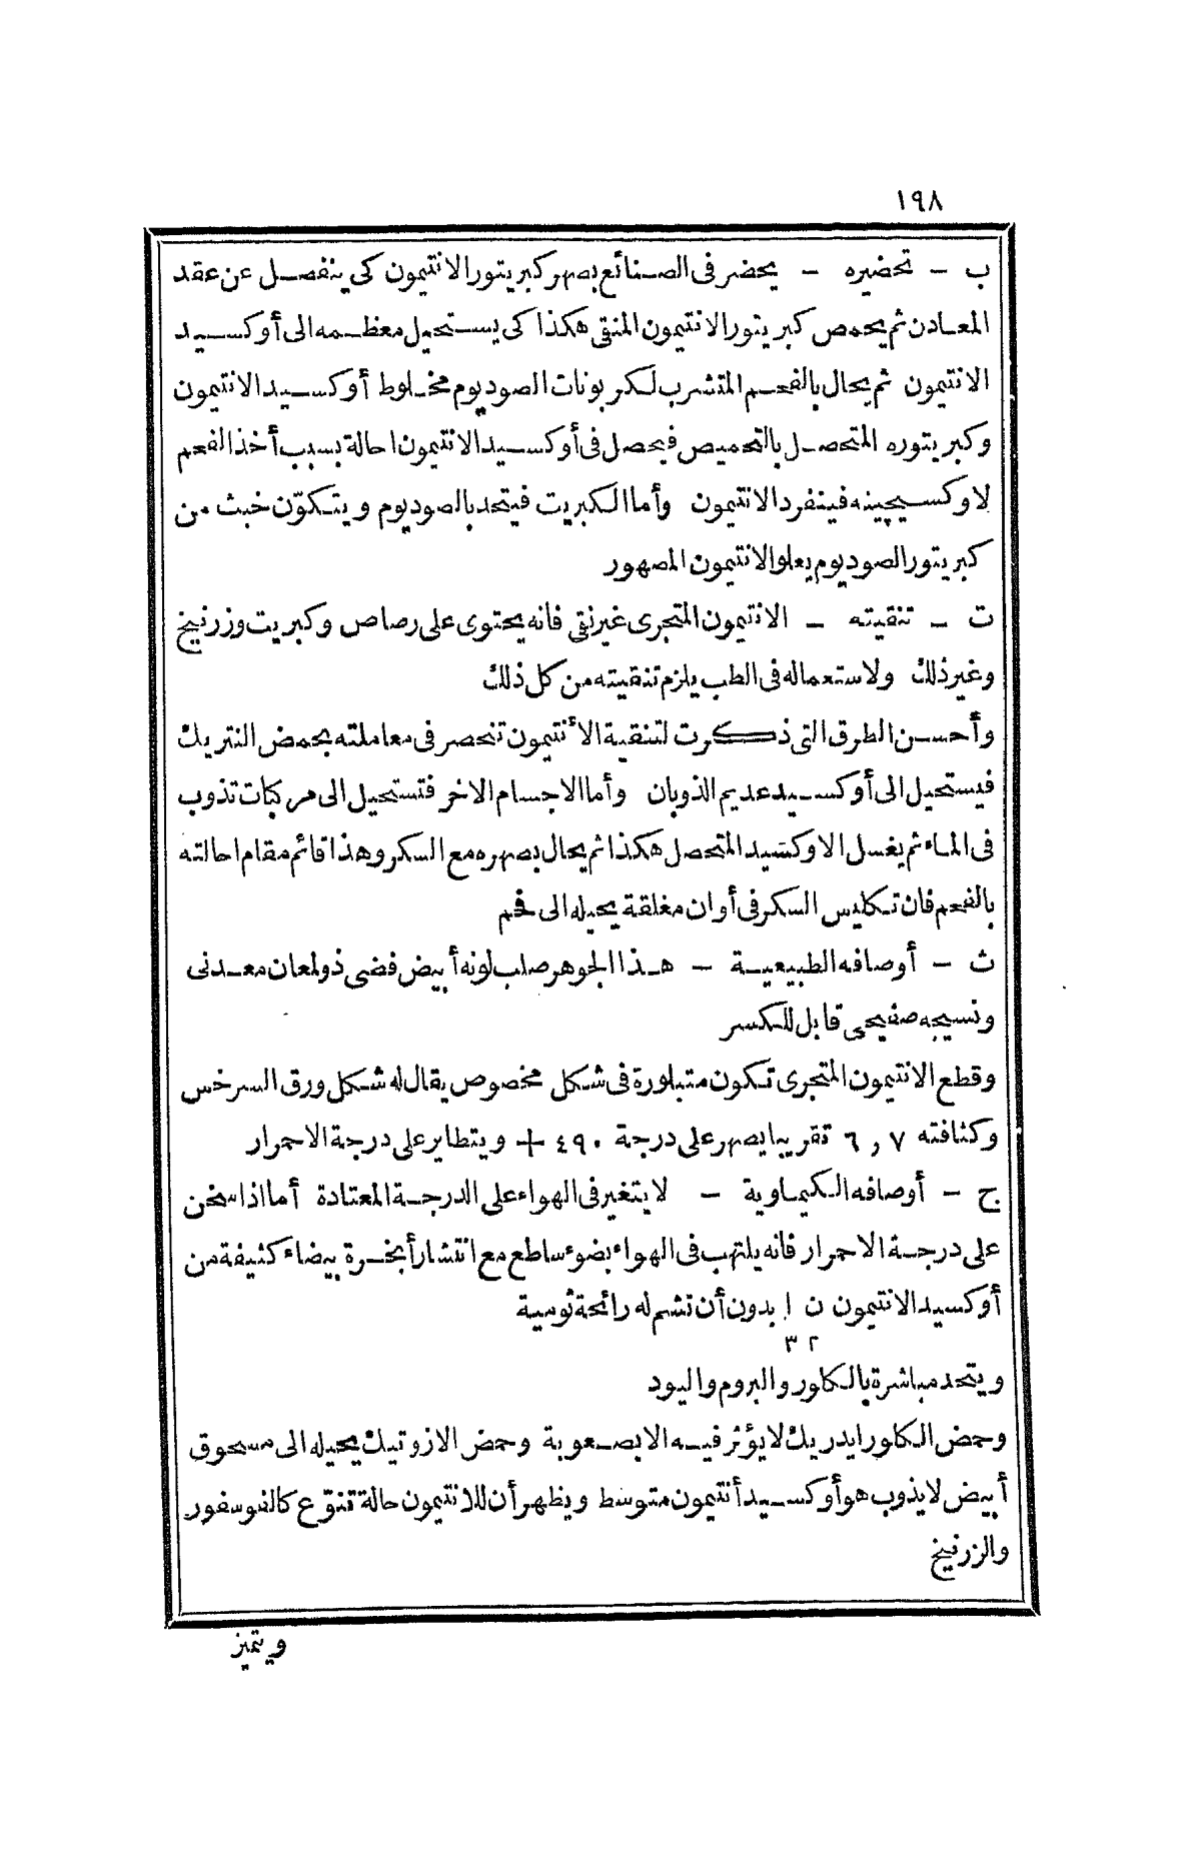 ١٩٨
ب - تحضيره - يحضر فى الصنائع بصهر كبريتور الانتيمون كى ينفصل عن عقد
المعادن ثم يحمص كبريتور الانتيمون المنقى هكذا كى يستحيل معظمه الى أوكسيد
الانتيمون ثم يحال بالفحم المتشرب لكربونات الصوديوم مخلوط أوكسيد الانتيمون
وكبريتوره المتحصل بالتحميص فيحصل فى أوكسيد الانتيمون احالة بسبب أخذ الفحم
لاوكسيچينه فينفرد الانتيمون وأما الكبريت فيتحد بالصوديوم ويتكوّن خبث من
كبريتور الصوديوم يعلو الانتيمون المصهور
ت - تنقيته - الانتيمون المتجرى غير نقى فانه يحتوى على رصاص وكبريت وزرنيخ
وغير ذلك ولاستعماله فى الطب يلزم تنقيته من كل ذلك
وأحسن الطرق التى ذكرت لتنقية الأنتيمون تنحصر فى معاملته بحمض النتريك
فيستحيل الى أوكسيد عديم الذوبان وأما الاجسام الاخر فتستحيل الى مركبات تذوب
فى الماء ثم يغسل الاوكسيد المتحصل هكذا ثم يحال بصهره مع السكر وهذا قائم مقام احالته
بالفحم فان تكليس السكر فى أوان مغلقة يحيله الى فحم
ث - أوصافه الطبيعية - هذا الجوهر صلب لونه أبيض فضى ذو لمعان معدنى
ونسيجه صفيحى قابل للكسر
وقطع الانتيمون المتجرى تكون متبلورة فى شكل مخصوص يقال له شكل ورق السرخس
وكثافته ٦,٧ تقريبا يصهر على درجة ٤٩٠ + ويتطاير على درجة الاحمرار
ج - أوصافه الكيماوية - لا يتغير فى الهواء على الدرجة المعتادة أما اذا سخن
على درجة الاحمرار فانه يلتهب فى الهواء بضوء ساطع مع انتشار أبخرة بيضاء كثيفة من
أوكسيد الانتيمون ن ا بدون أن تشم له رائحة ثومية
٢ ٣
ويتحد مباشرة بالكلور والبروم واليود
وحمض الكلورايدريك لا يؤثر فيه الا بصعوبة وحمض الازوتيك يحيله الى مسحوق
أبيض لا يذوب هو أوكسيد أنتيمون متوسط ويظهر أن للانتيمون حالة تنوّع كالفوسفور
والزرنيخ
ويتميز